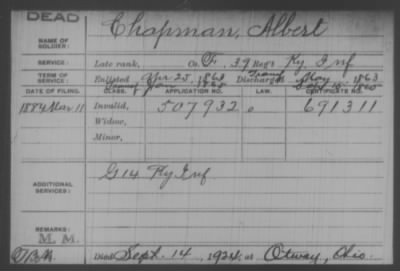 DEAD
NAME OF SOLDIER: Chapman, Albert
SERVICE: Late rank, Co. F, 39 Reg't Ky. Inf
TERM OF SERVICE: Enlisted Apr 25, 1863 Discharged May 1863
Jan 1865 Sept 15 1865
DATE OF FILING. CLASS. APPLICATION NO. LAW. CERTIFICATE NO.
1884 Mar 11 Invalid, 507932 691311
Widow,
Minor,
ADDITIONAL SERVICES: G 14 Ky Inf
REMARKS:
M. M.
Died Sept. 14, 1924, at Otway, Ohio.